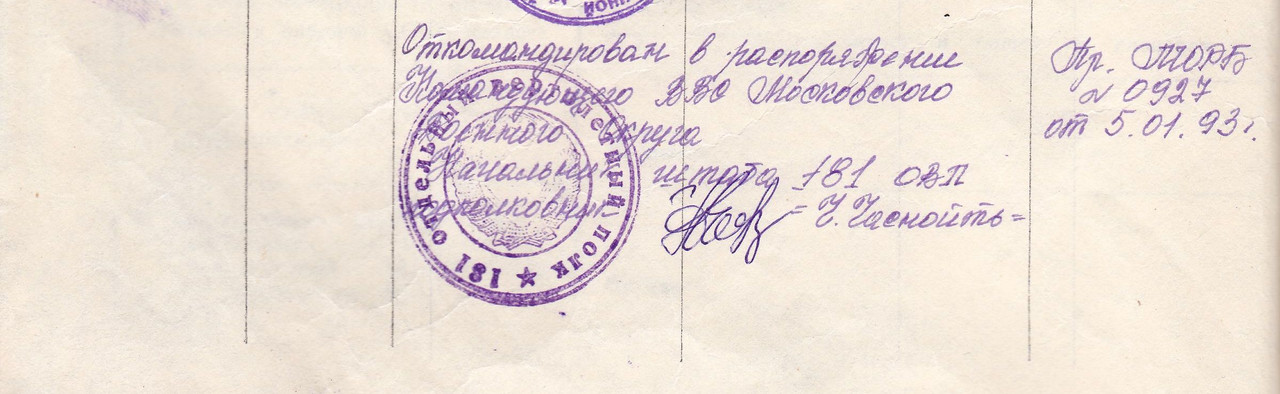 Откомандирован в распоряжение
Командующего ВВС Московского
военного округа
Начальник штаба 181 ОВП
подполковник
Пр.
№ 0927
от 5.01.93 г.
181 отдельный вертолетный полк